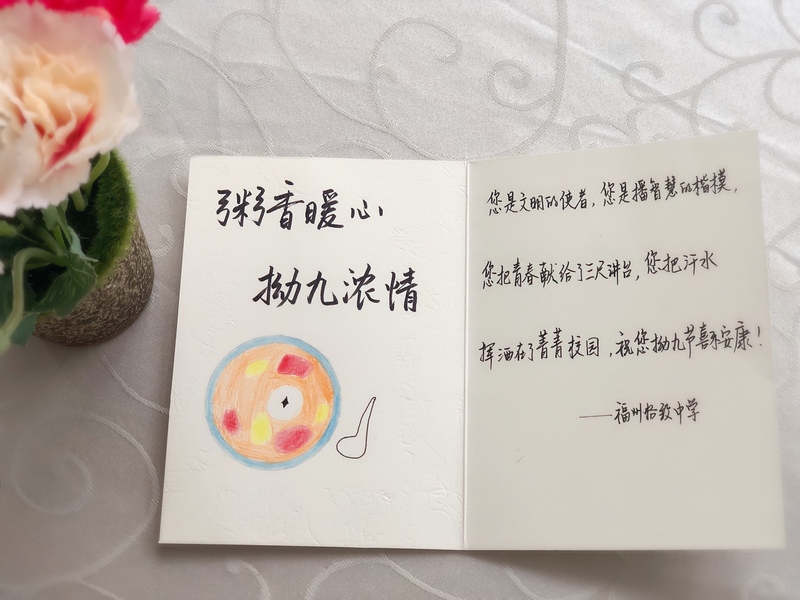 粥香暖心
拗九浓情
您是文明的使者，您是播智慧的楷模，
您把青春献给了三尺讲台，您把汗水
挥洒在了菁菁校园，祝您拗九节喜乐安康！
——福州格致中学